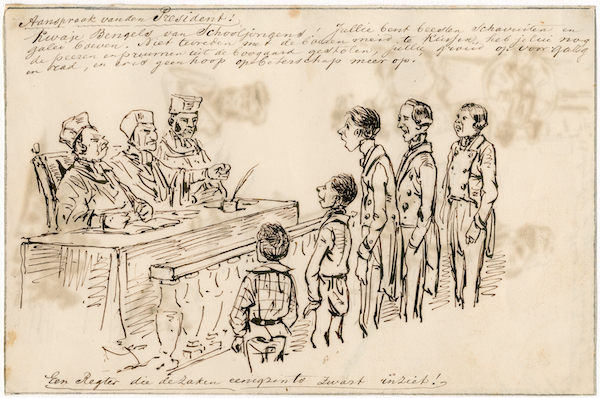 Aanspraak van den President:
Kwaje Bengels, van Schooljongens! Jullie bent beesten Schavuiten en
galei boeven. Niet tevreden met de boeren meid te heb jelui nog
de peeren en pruimen uit de boogaard gestolen, jullie op voor galg
en rad, en er is geen hoop op beterschap meer op.
Een Regter die de zaken eenigzints zwart inziet!